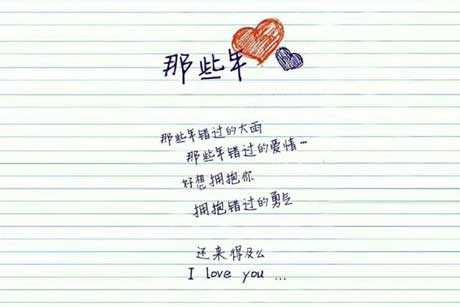 那些年
那些年错过的大雨
那些年错过的爱情…
好想拥抱你
拥抱错过的勇气
还来得及么
I love you ...